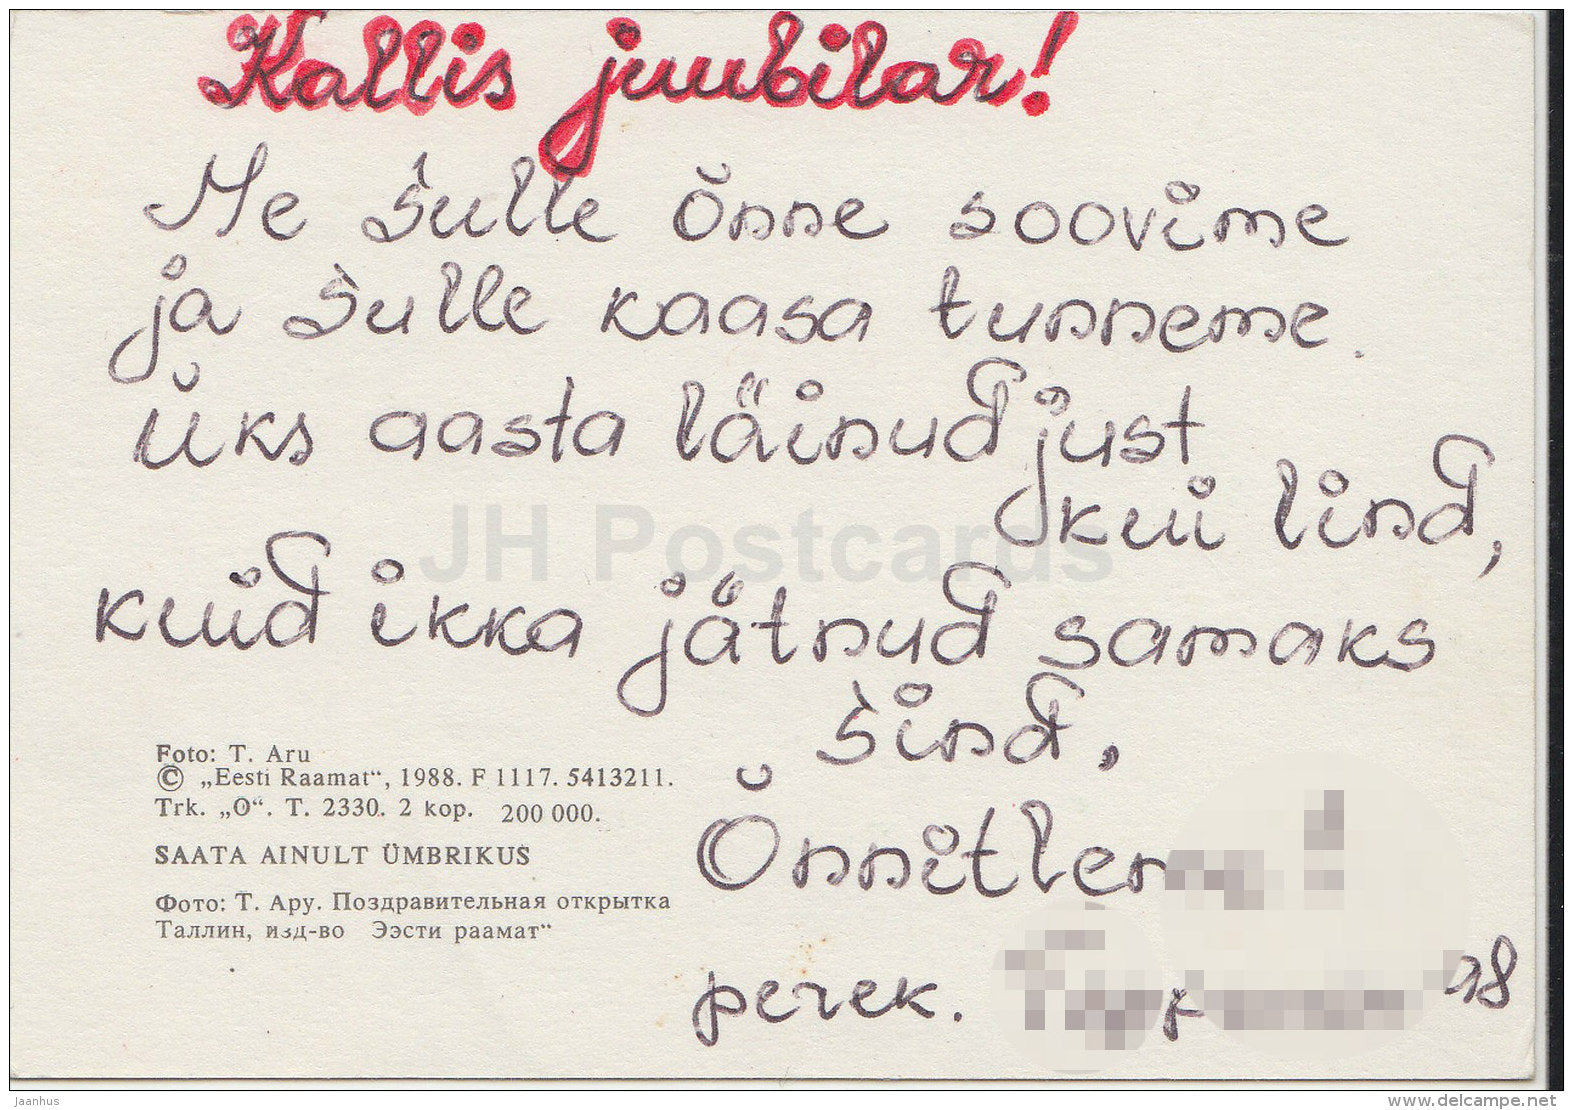 Kallis juubilar!
Me Sulle õnne soovime
ja Sulle kaasa tunneme.
Üks aasta läinud just
kui lind,
kuid ikka jätnud samaks
Sind,
Foto: T. Aru
© „Eesti Raamat“, 1988. F 1117. 5413211.
Trk. „O“. T. 2330. 2 kop. 200 000.
SAATA AINULT ÜMBRIKUS
Фото: Т. Ару. Поздравительная открытка
Таллин, изд-во Ээсти раамат“
perek.
18
JH Postcards
jaanhus
delcampe.net